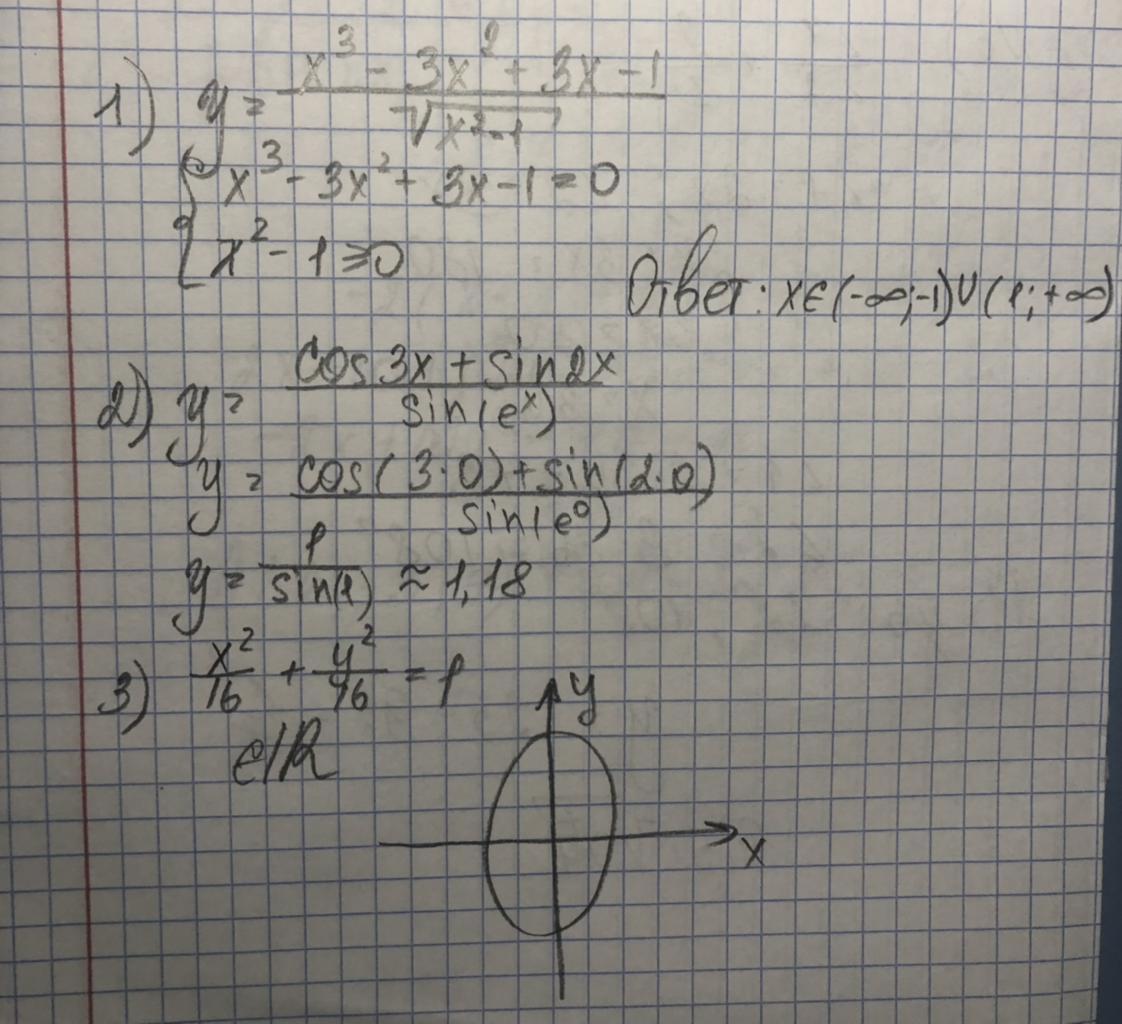 1) y = (x³ - 3x² + 3x - 1) / √(x² - 1)
{ x³ - 3x² + 3x - 1 = 0
x² - 1 ⩾ 0
Ответ: x∈(-∞;-1)∪(1;+∞)
2) y = (cos 3x + sin 2x) / sin(eˣ)
y = (cos(3·0) + sin(2·0)) / sin(e⁰)
y = 1 / sin(1) ≈ 1,18
3) x²/16 + y²/76 = 1
y
x